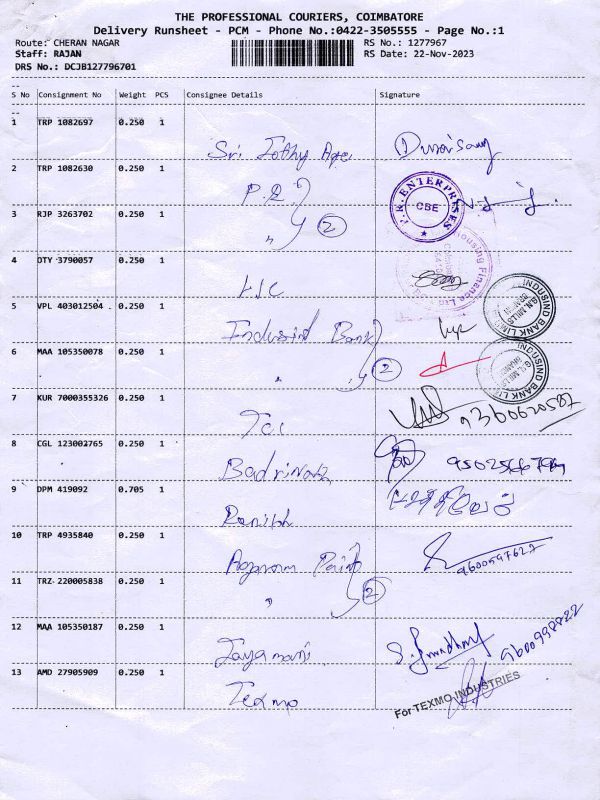 THE PROFESSIONAL COURIERS, COIMBATORE
Delivery Runsheet - PCM - Phone No.:0422-3505555 - Page No.:1
Route: CHERAN NAGAR RS No.: 1277967
Staff: RAJAN RS Date: 22-Nov-2023
DRS No.: DCJB127796701
S No Consignment No Weight PCS Consignee Details Signature
1 TRP 1082697 0.250 1
Sri Jothy
2 TRP 1082630 0.250 1
P.R. ENTERPRISES
CBE
3 RJP 3263702 0.250 1
" 2
4 OTY 3790057 0.250 1
Housing Finance
LIC
5 VPL 403012504 0.250 1
Indusind Bank
INDUSIND BANK
G.N. MILLS
6 MAA 105350078 0.250 1
" 2
INDUSIND BANK
G.N. MILLS
7 KUR 7000355326 0.250 1
9360620587
8 CGL 123002765 0.250 1
Badrinath
9 DPM 419092 0.705 1
10 TRP 4935840 0.250 1
Paint 9600597627
11 TRZ 220005838 0.250 1
" 2
12 MAA 105350187 0.250 1
Jayamani
13 AMD 27905909 0.250 1
Texmo
For TEXMO INDUSTRIES